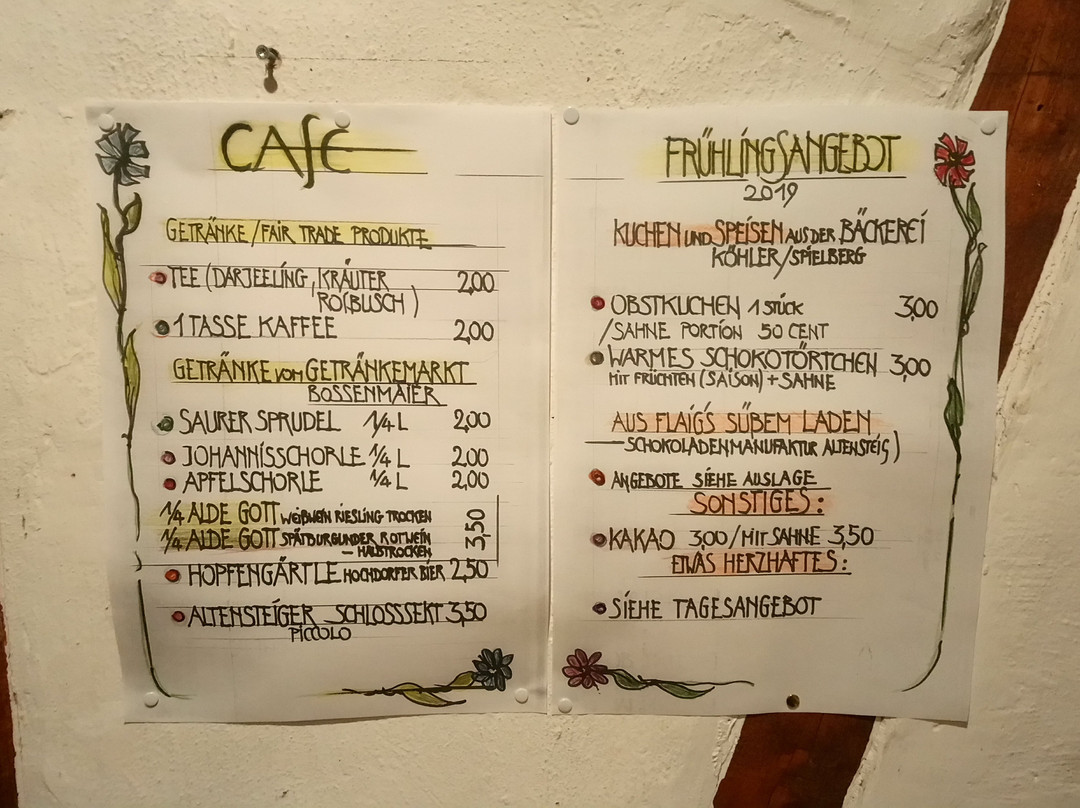 CAFE
GETRÄNKE/FAIR TRADE PRODUKTE
TEE (DARJEELING, KRÄUTER 2,00
ROIBUSCH)
1 TASSE KAFFEE 2,00
GETRÄNKE VOM GETRÄNKEMARKT
BOSSENMAIER
SAURER SPRUDEL 1/4 L 2,00
JOHANNISSCHORLE 1/4 L 2,00
APFELSCHORLE 1/4 L 2,00
1/4 ALDE GOTT WEIßWEIN RIESLING TROCKEN
1/4 ALDE GOTT SPÄTBURGUNDER ROTWEIN 3,50
– HALBTROCKEN
HOPFENGÄRTLE HOCHDORFER BIER 2,50
ALTENSTEIGER SCHLOSSSEKT 3,50
PICCOLO
FRÜHLINGSANGEBOT
2019
KUCHEN UND SPEISEN AUS DER BÄCKEREI
KÖHLER/SPIELBERG
OBSTKUCHEN 1 STÜCK 3,00
/SAHNE PORTION 50 CENT
WARMES SCHOKOTÖRTCHEN 3,00
MIT FRÜCHTEN (SAISON) + SAHNE
AUS FLAIG'S SÜßEM LADEN
– SCHOKOLADENMANUFAKTUR ALTENSTEIG)
ANGEBOTE SIEHE AUSLAGE
SONSTIGES:
KAKAO 3,00/MIT SAHNE 3,50
ETWAS HERZHAFTES:
SIEHE TAGESANGEBOT